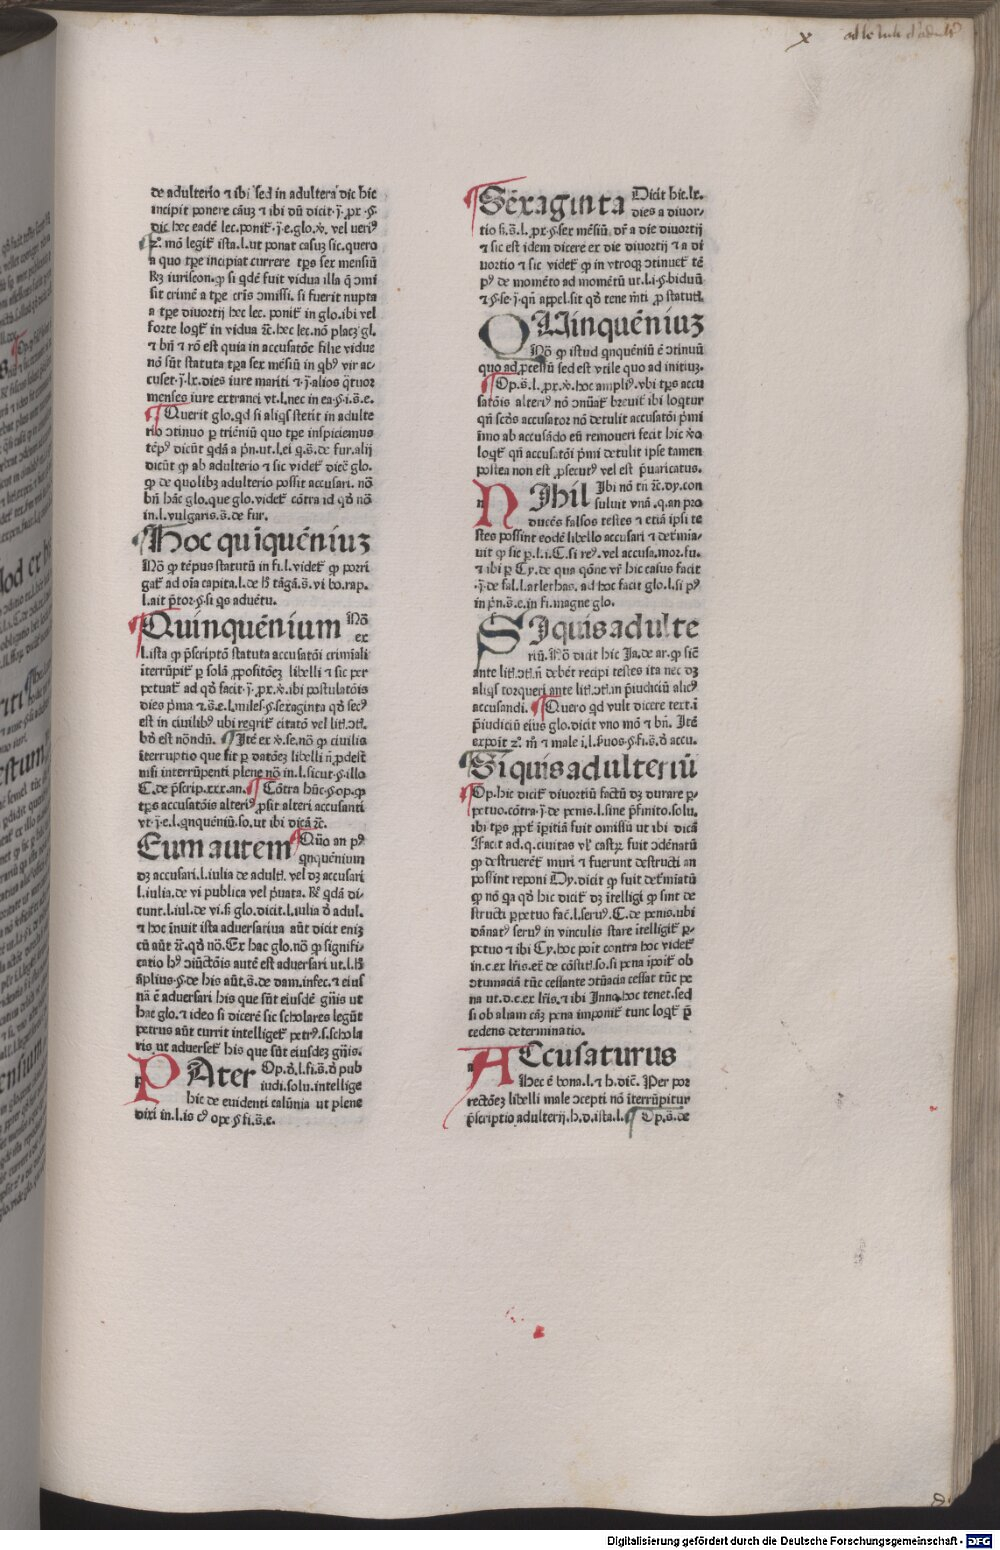 x ad le iuli d' adult'
de adulterio ⁊ ibi sed in adultera dic hic
incipit ponere cāuȝ ⁊ ibi dū dicit · ꝓx · §
dic hec eadē lec. ponit̄ · ȷ̄ · e. glo. x̄. vel veriꝰ
mō legit̄ ista. l. ut ponat casuȝ sic. quero
a quo tꝑe incipiat currere tꝑs sex mensiū
iuriscon. ꝙ si qdē fuit vidua illa q̄ ɔmi
sit crimē a tꝑe cris ɔmissi. si fuerit nupta
a tꝑe diuortij hec lec. ponit̄ in glo. ibi vel
forte loqt̄ in vidua ⁊c̄. hec lec. nō placȝ gl.
⁊ bn̄ ⁊ rō est quia in accusatōe filie vidue
nō sūt statuta tꝑa sex mēsiū in qbꝰ vir ac
cuset · ȷ̄ · lx. dies iure mariti ⁊ · ȷ̄ · alios q̄tuor
menses iure extranei vt. l. nec in ea · § · i. s̄. e.
Querit glo. qd si aliqs stetit in adulte
rio ɔtinuo ꝑ triēniū quo tꝑe inspiciemus
tēpꝰ dicūt qdā a pn̄. ut. l. ei q. s̄. de fur. alij
dicūt ꝙ ab adulterio ⁊ sic videt̄ dicē glo.
ꝙ de quolibȝ adulterio possit accusari. nō
bn̄ hāc glo. que glo. videt̄ cōtra id qđ nō
in. l. vulgaris. s̄. de fur.
Hoc quīquēniuȝ
Nō ꝙ tēpus statutū in fi. l. videt̄ ꝙ porri
gat̄ ad oīa capita. l. de tāgā. s̄. vi bo. rap.
l. ait p̄tor · § · si qs aduētu.
Quinquēnium Nō
ex
l. ista ꝙ p̄scriptō statuta accusatōi crimīali
īterrūpit̄ ꝑ solā ꝓpositōeȝ libelli ⁊ sic per
petuat̄ ad qđ facit · ȷ̄ · ꝓx. x̄. ibi postulatōis
dies p̄ma ⁊ s̄. e. l. miles · § · sexaginta qđ secꝰ
est in ciuilibꝰ ubi reqrit̄ citatō vel lit̄. ɔt̄.
est nōndū. Itē ex x̄. se. nō ꝙ ciuilis
īterruptio que fit ꝑ datōeȝ libelli n̄ ꝓdest
nisi interrūpenti plene nō in. l. sicut · § · illo
C. de p̄scrip. xxx. an. Cōtra hūc · § · op. ꝙ
tꝑs accusatōis alteriꝰ ꝓsit alteri accusanti
vt · ȷ̄ · e. l. qnquēniū. so. ut ibi dicā ⁊c̄.
Eum autem Quo an pꝰ
qnquēnium
dȝ accusari. l. iulia de adult̄. vel dȝ accusari
l. iulia. de vi publica vel p̄uata. qdā di-
cunt. l. iul. de vi. glo. dicit. l. iulia đ adul.
⁊ hoc īnuit ista aduersatiua aūt dicit eniȝ
cū aūt ⁊c̄. qđ nō. Ex hac glo. nō ꝙ signifi-
catio hꝰ ɔiūctōis autē est aduersari ut. l.
āplius · § · de his aūt. s̄. de dam. infec. ⁊ eius
nā ē aduersari his que sūt eiusdē gn̄is ut
hac glo. ⁊ ideo si dicerē sic scholares legūt
petrus aūt currit intelliget̄ petrꝰ. s. schola
ris ut aduerset̄ his que sūt eiusdeȝ gn̄is.
PAter Op. đ. l. fi. s̄. đ pub
iudi. solu. intellige
hic de euidenti calūnia ut plene
dixi in. l. is cꝰ ope · § · fi. s̄. e.
Sexaginta Dicit hic. lx.
dies a diuor-
tio s. s̄. l. ꝓx. § · sex mēsiū. dr̄ a die diuortij
⁊ sic est idem dicere ex die diuortij ⁊ a di
uortio ⁊ sic videt̄ ꝙ in vtroqȝ ɔtinuet̄ tē
pꝰ de momēto ad momētū ut. l. i · § · biduū
⁊ § · se · ȷ̄ · qn̄ appel. sit qđ tene mīti ꝓ statut̄.
QUinquēniuȝ
Nō ꝙ istud qnquēniū ē ɔtinuū
quo ad ꝓcessū sed est vtile quo ad initiuȝ.
Op. s̄. l. ꝓx. x̄. hoc ampliꝰ. vbi tꝑs accu
satōis alteriꝰ nō ɔnūat̄ breuit̄ ibi loqtur
qn̄ scđs accusator nō detulit accusatōi p̄mi
īmo ab accusādo eū remoueri fecit hic x̄o
loqt̄ qn̄ accusatōi p̄mi detulit ipse tamen
postea non est ꝓsecutꝰ vel est p̄uaricatus.
NIhil Ibi nō tn̄ ⁊c̄. dy. con
suluit vnā. q. an pro
ducēs falsos testes ⁊ etiā ipsi te
stes possint eodē libello accusari ⁊ det̄mia-
uit ꝙ sic ꝑ. l. i. C. si reꝰ. vel accusa. mor. fu.
⁊ ibi ꝑ Cy. de qua qōne vr̄ hic casus facit
· ȷ̄ · de fal. l. atlethas. ad hoc facit glo. l. si pꝰ
in p̄n. s̄. e. in fi. magne glo.
SIquis adulte
riū. Nō dicit hic Ja. de ar. ꝙ sic̄
ante lit̄. ɔt̄. n̄ debēt recipi testes ita nec dȝ
aliqs torqueri ante lit̄. ɔt̄. in p̄iudiciū alicꝰ
accusandi. Quero qd vult dicere text. ī
p̄iudiciū eius glo. dicit vno mō ⁊ bn̄. Itē
expoīt ⁊ male i. l. s̄uos · § · fi. s̄. đ accu.
Siquis adulteriū
Op. hic dicit̄ diuortiū factū dȝ durare ꝑ-
petuo. cōtra · ȷ̄ · de penis. l. sine p̄finito. solu.
ibi tꝑs ꝓpt̄ īpitiā fuit omissū ut ibi dicā
Facit ad. q. ciuitas vl̄ castꝝ fuit ɔdēnatū
ꝙ destruerēt̄ muri ⁊ fuerunt destructi an
possint reponi Dy. dicit ꝙ fuit det̄mīatū
ꝙ nō qa qđ hic dicit̄ dȝ ītelligi ꝙ sint de
structi ꝑpetuo fac̄. l. seruꝰ. C. de penis. ubi
dānatꝰ seruꝰ in vinculis stare ītelligit̄ ꝑ-
petuo ⁊ ibi Cy. hoc poīt contra hoc videt̄
in. c. ex lr̄is. de cōstit̄. so. si pena īpoīt̄ ob
ɔtumaciā tūc cessante ɔtūacia cessat tūc pe
na ut. d. c. ex lr̄is. ⁊ ibi Inno. hoc tenet. sed
si ob aliam cāȝ pena imponit̄ tunc loqt̄ p̄
cedens determinatio.
ACcusaturus
Hec ē bona. l. ⁊ h. dic̄. Per por
rectōeȝ libelli male ɔcepti nō īterrūpitur
p̄scriptio adulterij. h. d. ista. l. Op. s̄. de
Digitalisierung gefördert durch die Deutsche Forschungsgemeinschaft - DFG